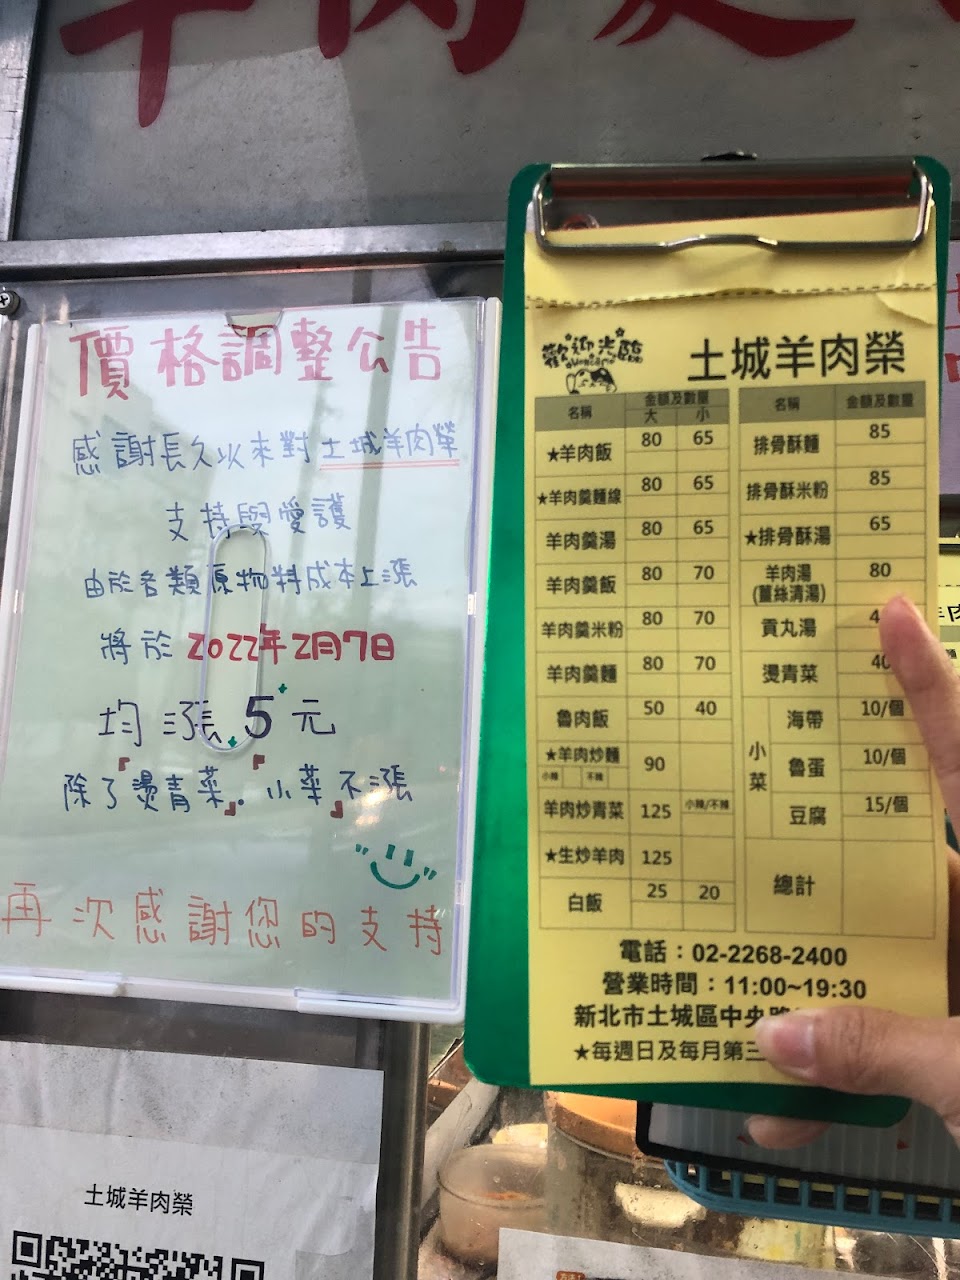 價格調整公告
感謝長久以來對土城羊肉榮
支持與愛護
由於各類原物料成本上漲
將於2022年2月7日
均漲5元
除了燙青菜。小菜不漲
再次感謝您的支持
土城羊肉榮
歡迎光臨
Welcome
土城羊肉榮
名稱 金額及數量
大 小
★羊肉飯 80 65
★羊肉羹麵線 80 65
羊肉羹湯 80 65
羊肉羹飯 80 70
羊肉羹米粉 80 70
羊肉羹麵 80 70
魯肉飯 50 40
★羊肉炒麵 90
小辣 不辣
羊肉炒青菜 125 小辣/不辣
★生炒羊肉 125
白飯 25 20
名稱 金額及數量
排骨酥麵 85
排骨酥米粉 85
★排骨酥湯 65
羊肉湯 80
(薑絲清湯)
貢丸湯 4
燙青菜 40
小菜
海帶 10/個
魯蛋 10/個
豆腐 15/個
總計
電話：02-2268-2400
營業時間：11:00~19:30
新北市土城區中央路
★每週日及每月第三